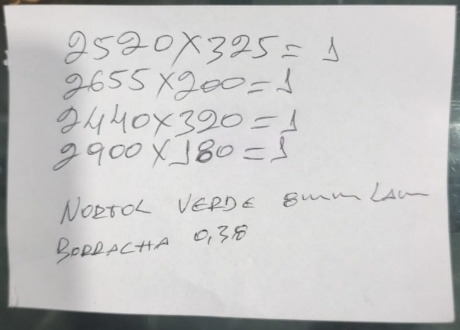 2520X325=1
2655X200=1
2440X320=1
2900X180=1
NORTOL VERDE 8mm LAM
BORRACHA 0,38